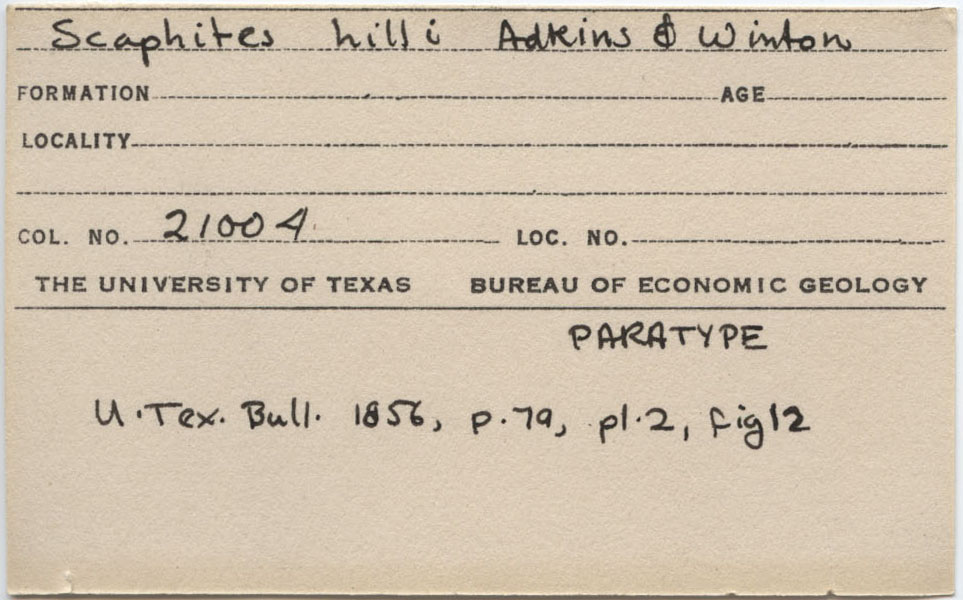 Scaphites hilli Adkins & Winton
FORMATION AGE
LOCALITY
COL. NO. 21004 LOC. NO.
THE UNIVERSITY OF TEXAS BUREAU OF ECONOMIC GEOLOGY
PARATYPE
U. Tex. Bull. 1856, p. 79, pl. 2, fig 12